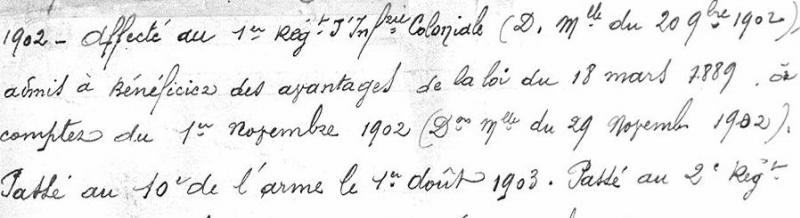 1902 - Affecté au 1er Régt d'Infrie Coloniale (D. Mlle du 20 9bre 1902)
admis à bénéficier des avantages de la loi du 18 mars 1889 à
compter du 1er Novembre 1902 (Don Mlle du 29 Novemb 1902).
Passé au 10e de l'arme le 1er Août 1903. Passé au 2e Régt